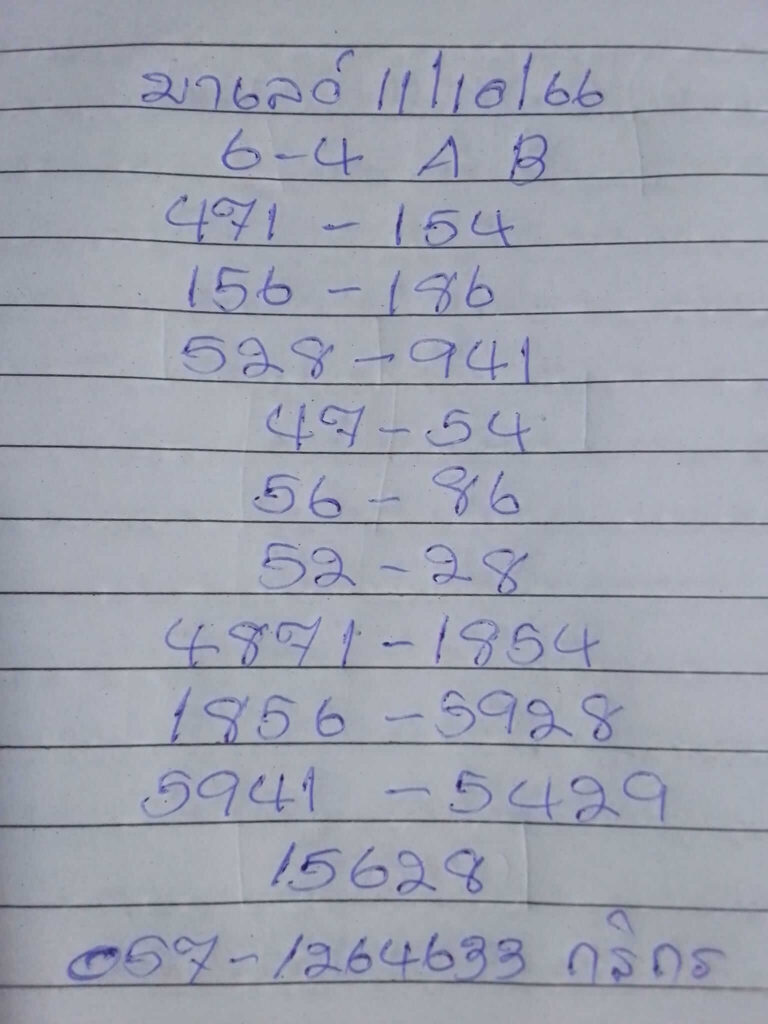 มาเลย์ 11/10/66
6-4 A B
471 - 154
156 - 186
528 - 941
47 - 54
56 - 86
52 - 28
4871 - 1854
1856 - 5928
5941 - 5429
15628
057-1264633